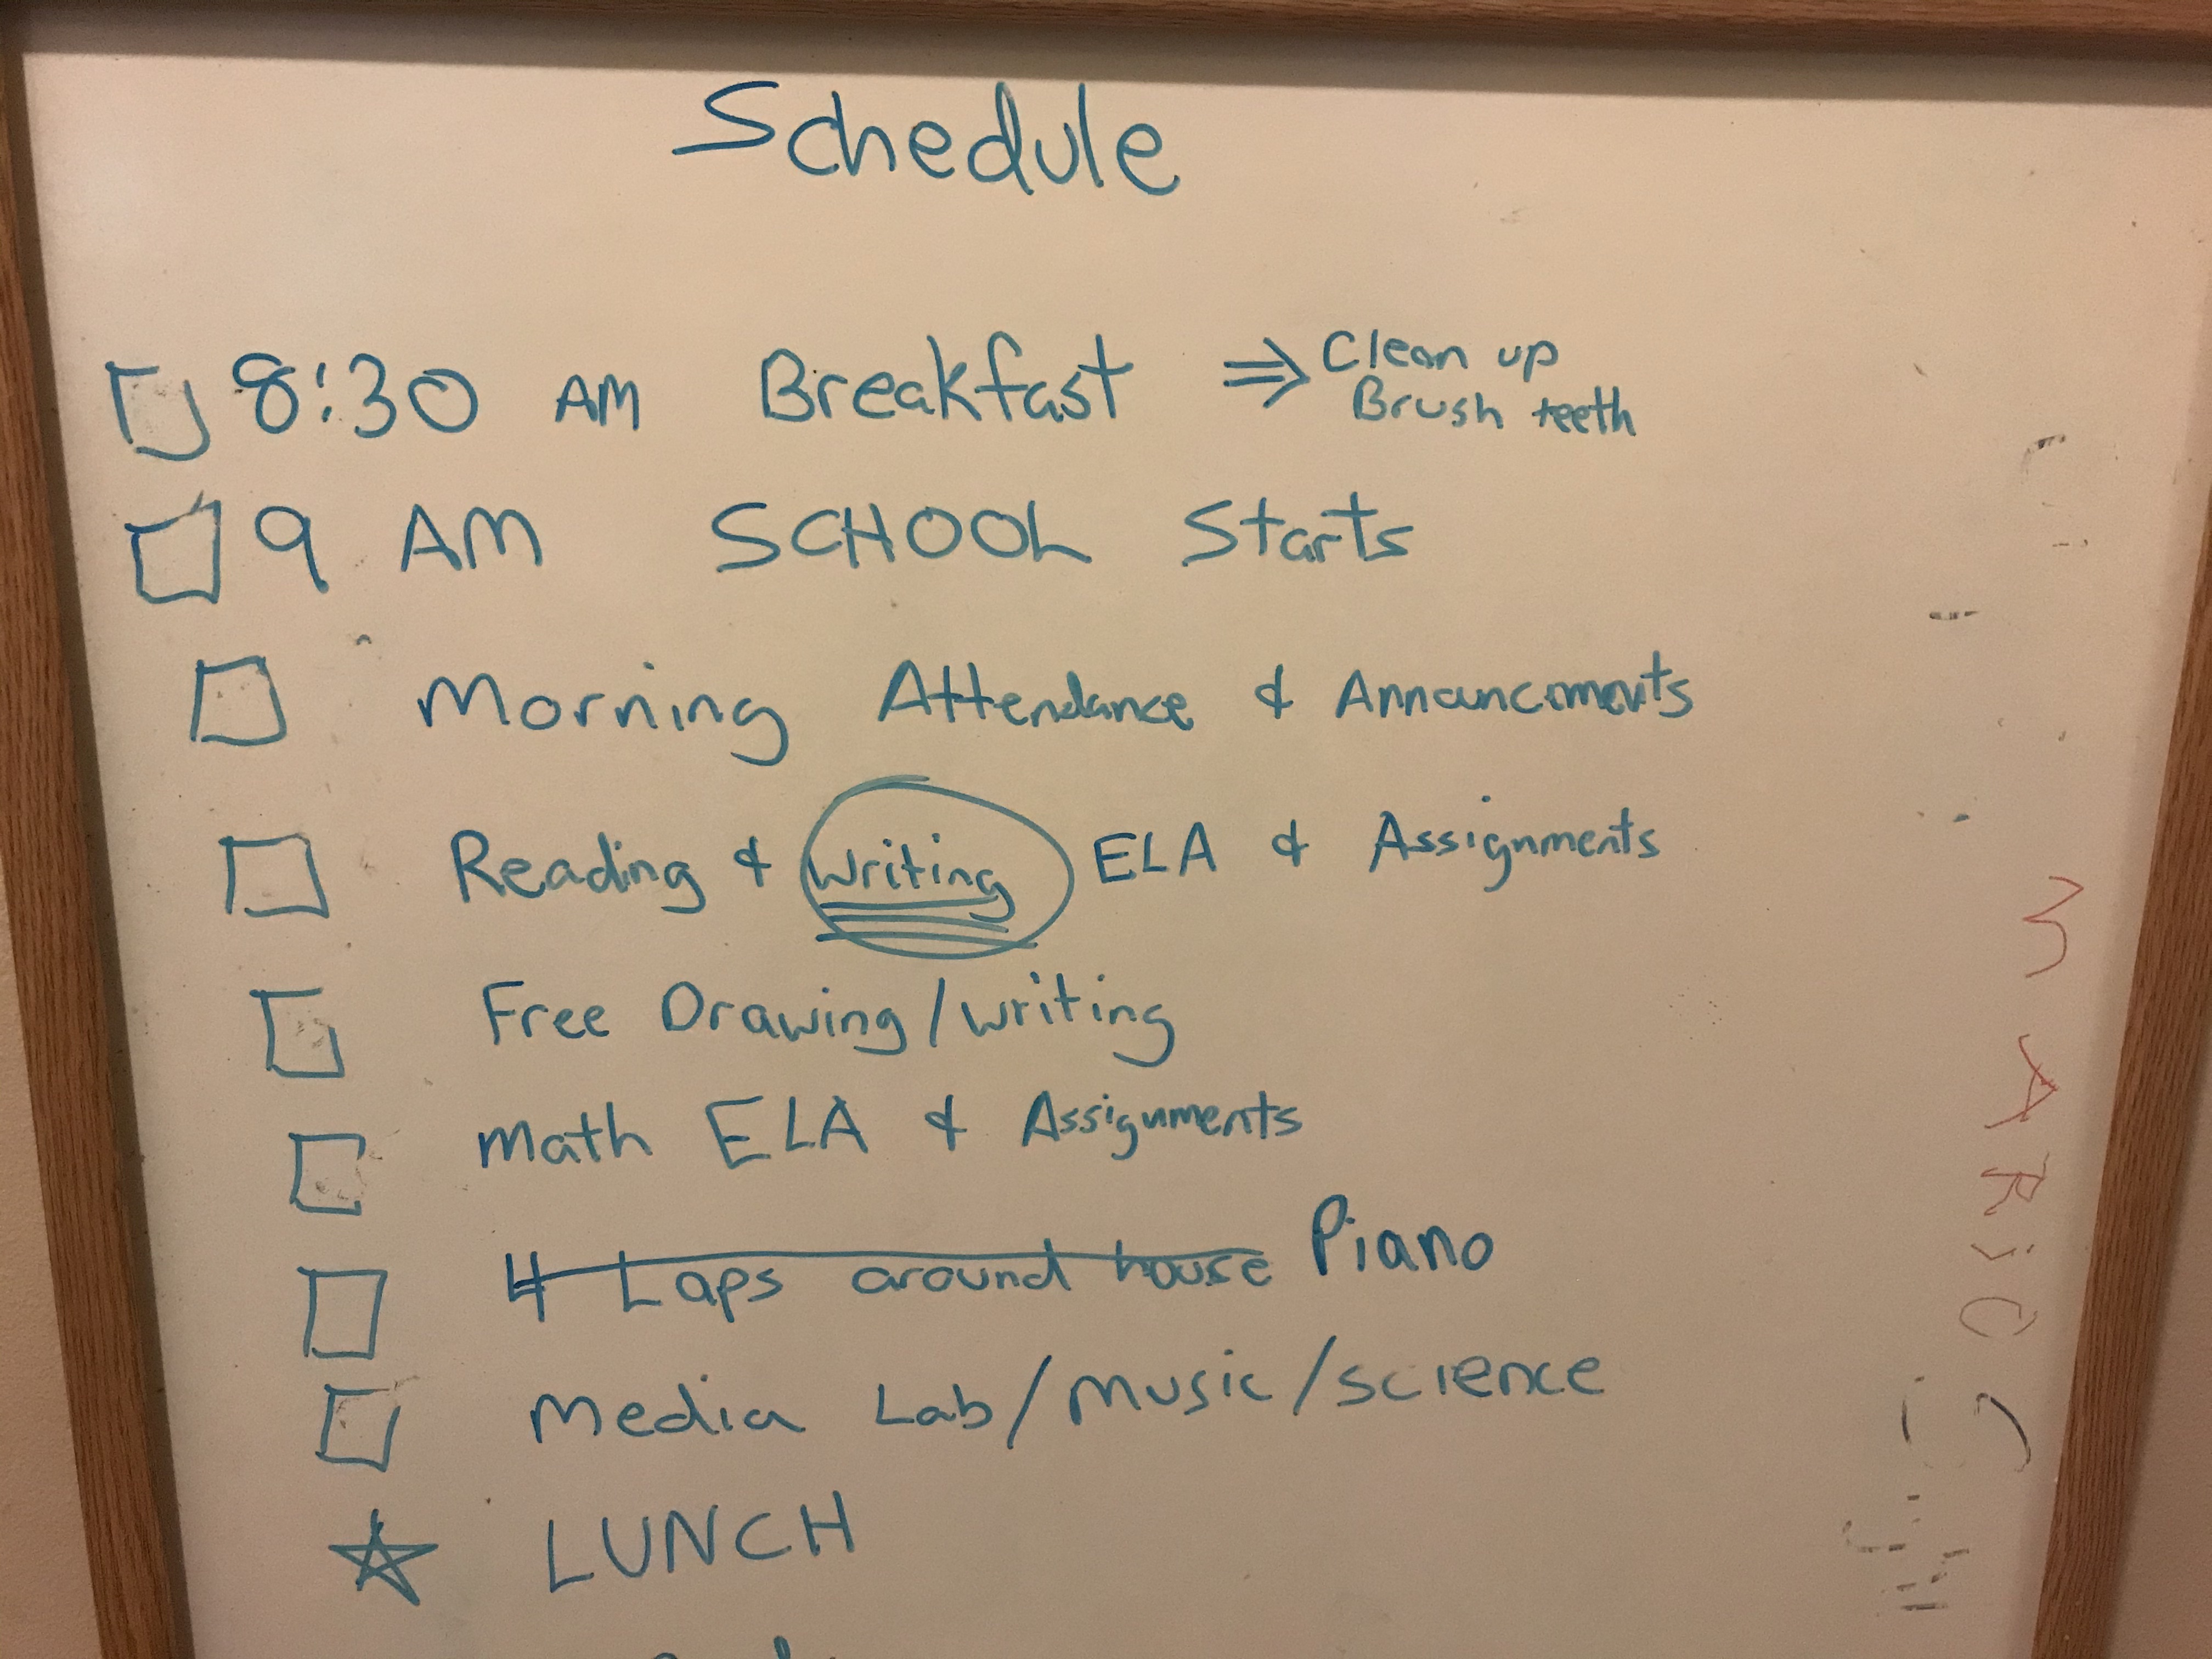 Schedule
8:30 AM Breakfast ⇒ Clean up
Brush teeth
9 AM SCHOOL Starts
Morning Attendance & Announcements
Reading & Writing ELA & Assignments
Free Drawing/writing
Math ELA & Assignments
4 Laps around house Piano
Media Lab/Music/science
LUNCH